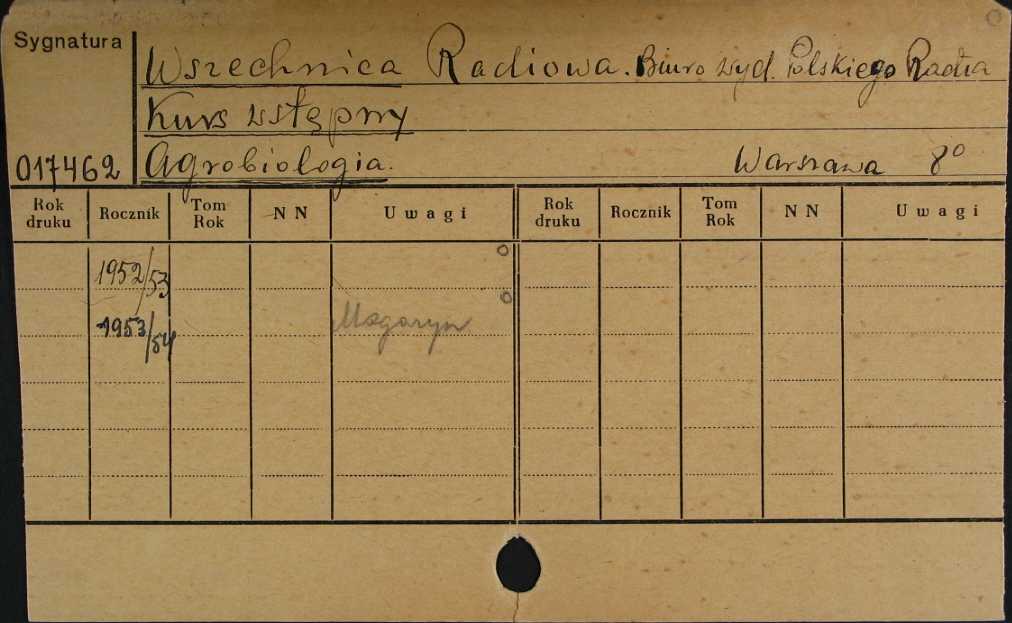 Sygnatura
Wszechnica Radiowa. Biuro wyd. Polskiego Radia
Kurs wstępny
017462 Agrobiologia. Warszawa 8°
Rok druku Rocznik Tom Rok N N Uwagi Rok druku Rocznik Tom Rok N N Uwagi
1952/53
1953/54 Magazyn